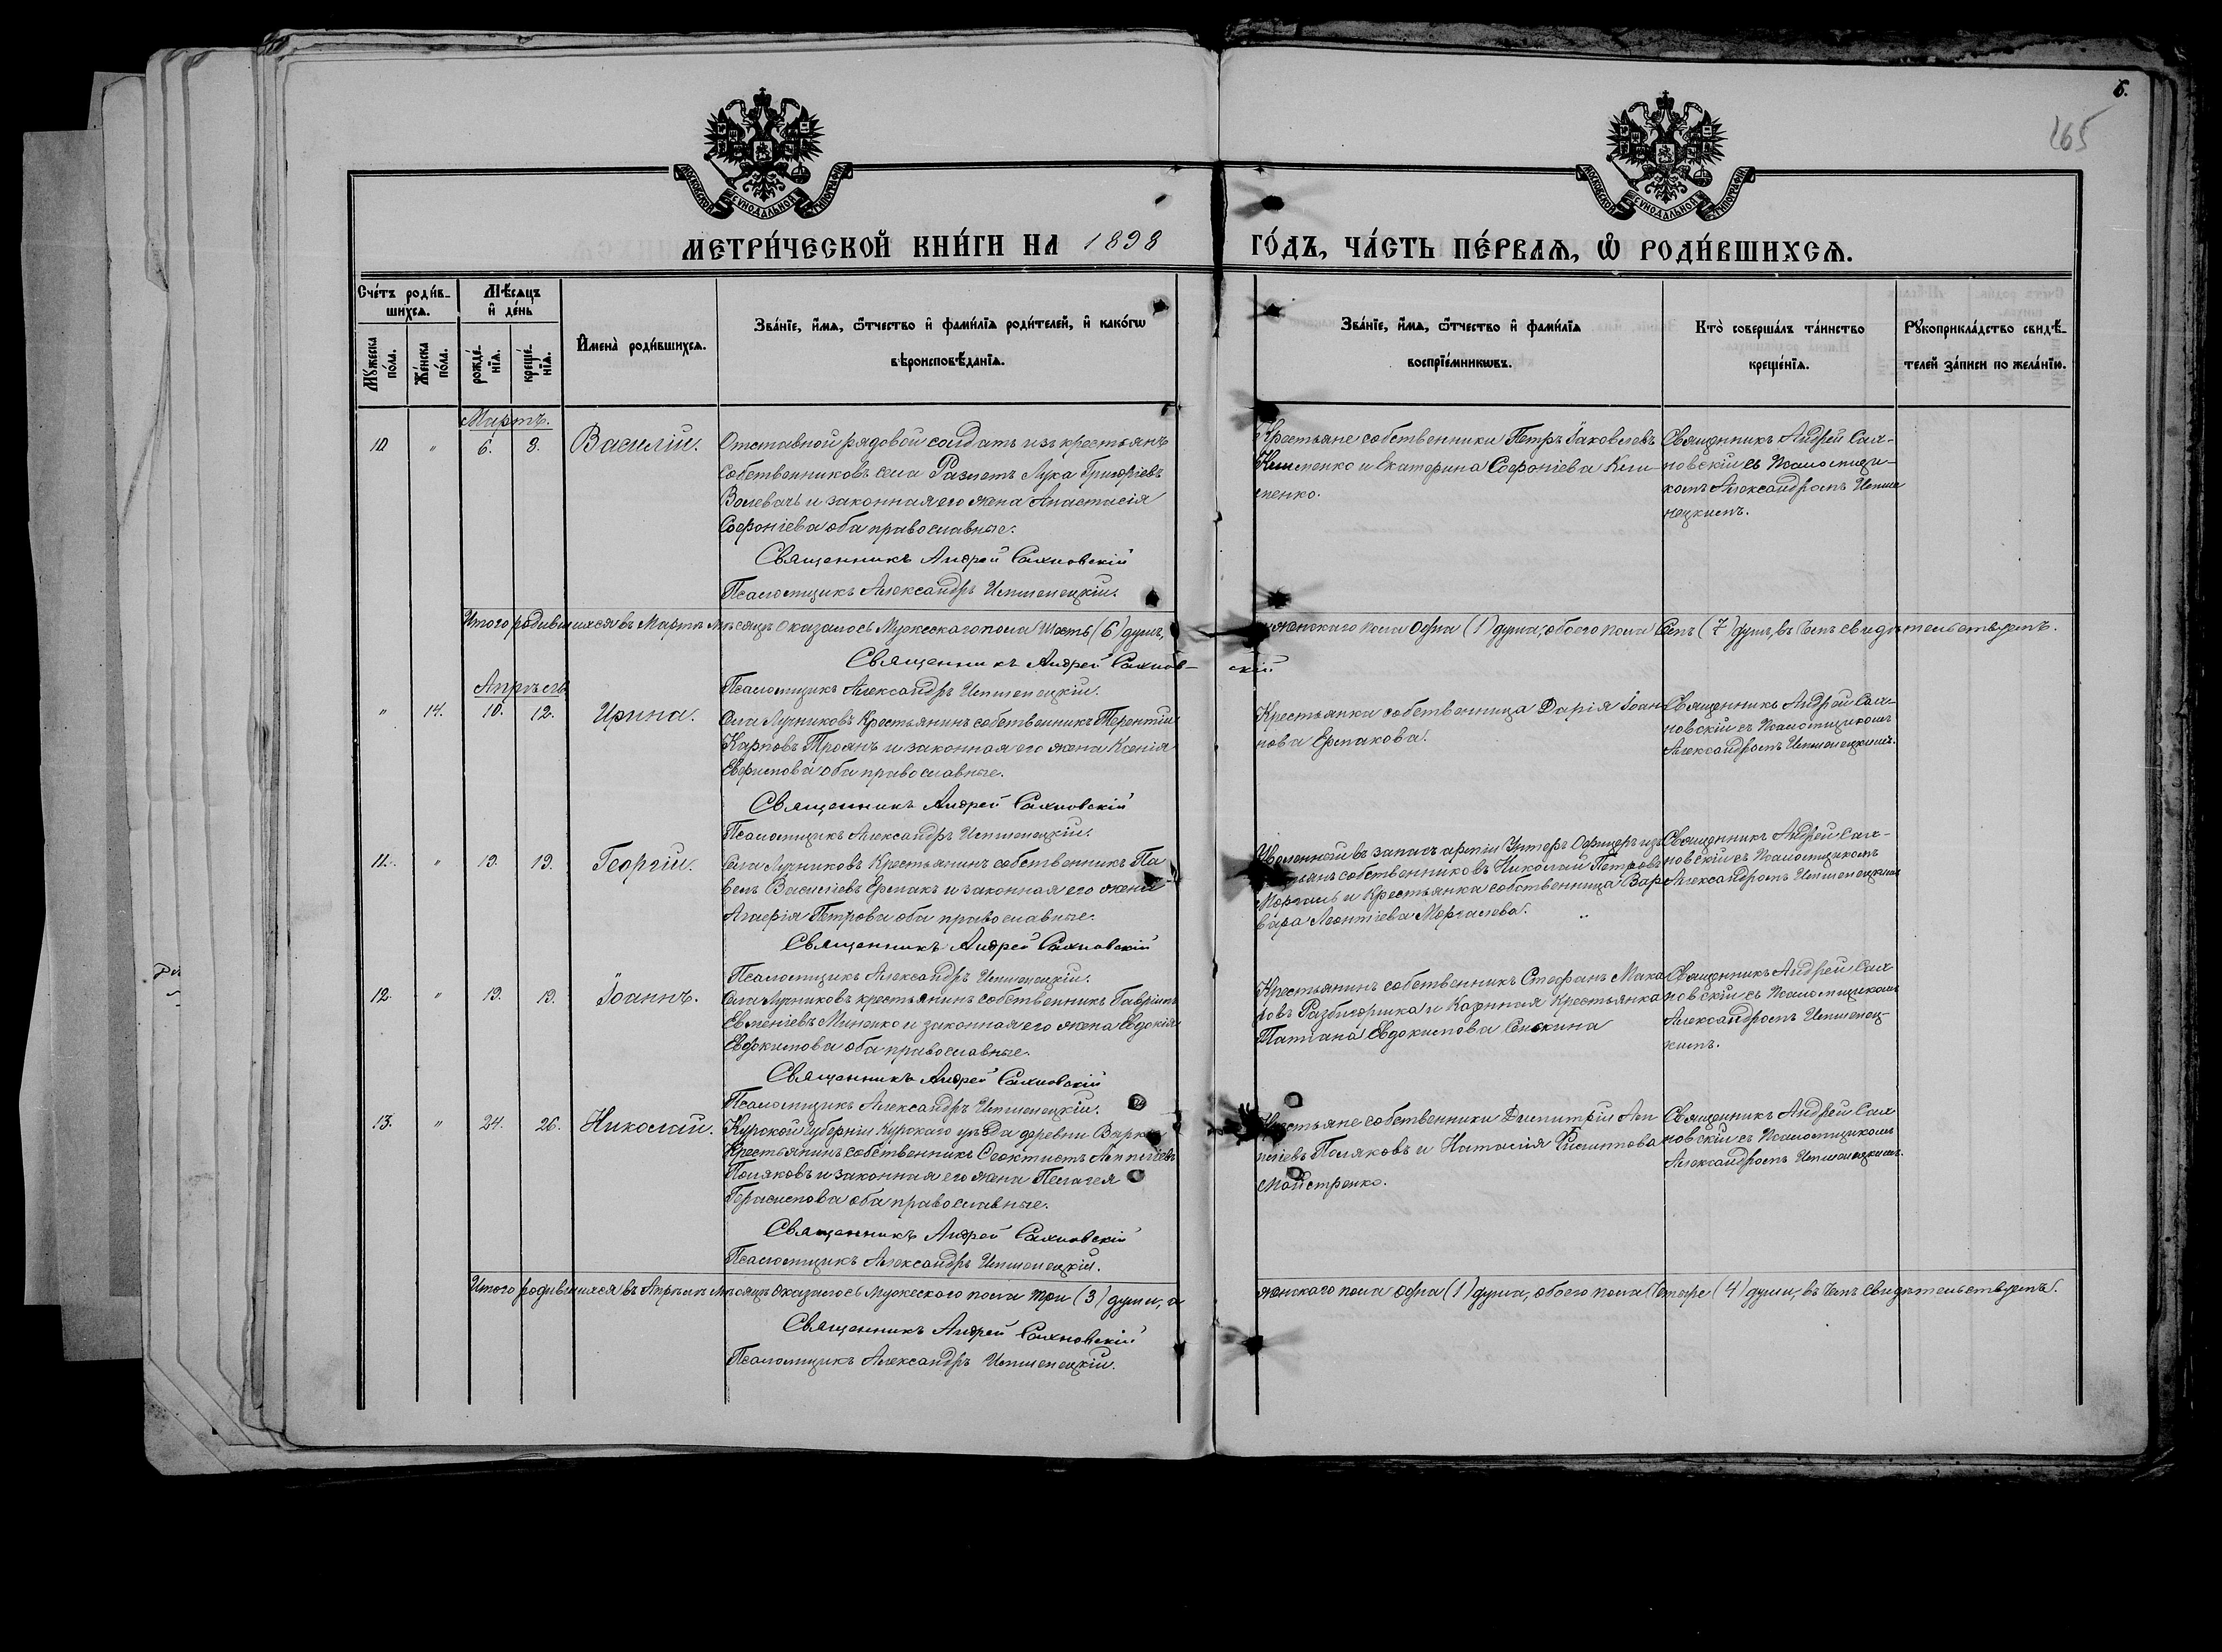 5.
265
МОСКОВСКОЙ СУНОДАЛЬНОЙ ТИПОГРАФІИ
МОСКОВСКОЙ СУНОДАЛЬНОЙ ТИПОГРАФІИ
МЕТРИ́ЧЕСКОЙ КНИ́ГИ НА 1898 ГО́ДЪ, ЧА́СТЬ ПЕ́РВАѦ, Ѡ РОДИ́ВШИХСѦ.
Сче́тъ роди́в-
шихсѧ.
Мꙋ́жеска по́ла.
Же́нска по́ла.
Мѣ́сѧцъ
и҆ де́нь
рожде́-
нїѧ.
креще́-
нїѧ.
И҆мена̀ роди́вшихсѧ.
Зва́нїе, и҆́мѧ, ѻ҆́тчество и҆ фами́лїѧ роди́телей, и҆ како́гѡ
вѣроисповѣ́данїѧ.
Зва́нїе, и҆́мѧ, ѻ҆́тчество и҆ фами́лїѧ
воспрїе́мникѡвъ.
Кто̀ соверша́лъ та́инство
креще́нїѧ.
Рꙋкоприкла́дство свидѣ́-
телей за́писи по жела́нїю.
Мартъ.
10 " 6. 8. Василій.
Отставной рядовой солдатъ изъ крестьянъ
собственниковъ села Лука Григоріевъ
Волевачъ и законная его жена Анастасія
Софроніева оба православные.
Священникъ Андрей Сахновскій
Псаломщикъ Александръ
Крестьяне собственники Петръ Іаковлевъ
и Екатерина Софроніева Кли-
менко.
Священникъ Андрей Сах-
новскій съ Псаломщи-
комъ Александромъ
Итого родившихся въ Мартѣ мѣсяцѣ оказалось Мужескаго пола шесть (6) душъ, женскаго пола одна (1) душа, обоего пола семь (7) душъ, въ чемъ свидѣтельствуетъ.
Священникъ Андрей Сахнов- скій
Псаломщикъ Александръ
Апрѣль
" 14. 10. 12. Ирина.
Села Лучниковъ Крестьянинъ собственникъ Терентій
Карповъ Троянъ и законная его жена Ксенія
Евфимова оба православные.
Священникъ Андрей Сахновскій
Псаломщикъ Александръ
Крестьянка собственница Дарія Іоан-
нова Ермакова.
Священникъ Андрей Сах-
новскій съ Псаломщикомъ
Александромъ
11. " 19. 19. Георгій.
Села Лучниковъ Крестьянинъ собственникъ Па
велъ Василіевъ Ермакъ и законная его жена
Агафія Петрова оба православные.
Священникъ Андрей Сахновскій
Псаломщикъ Александръ
Уволенный въ запасъ арміи Унтеръ Офицеръ изъ
собственниковъ Николай Петровъ
Моргаль и Крестьянка собственница Вар
вара Леонтіева Моргалева.
Священникъ Андрей Сах-
новскій съ Псаломщикомъ
Александромъ
12. " 19. 19. Іоаннъ.
Села Лучниковъ крестьянинъ собственникъ Гавріилъ
Евменіевъ Миненко и законная его жена Евдокія
Евдокимова оба православные.
Священникъ Андрей Сахновскій
Псаломщикъ Александръ
Крестьянинъ собственникъ Стефанъ Мака
ровъ и Казенная Крестьянка
Татіана Евдокимова
Священникъ Андрей Сах
новскій съ Псаломщикомъ
Александромъ
13. " 24. 26. Николай.
Курской Губерніи Курскаго уѣзда деревни
Крестьянинъ собственникъ Ѳеоктистъ
Поляковъ и законная его жена Пелагея
Герасимова оба православные.
Священникъ Андрей Сахновскій
Псаломщикъ Александръ
Крестьяне собственники Димитрій
Поляковъ и Наталія Филиппова
Майстренко.
Священникъ Андрей Сах
новскій съ Псаломщикомъ
Александромъ
Итого родившихся въ Апрѣлѣ мѣсяцѣ оказалось Мужескаго пола три (3) души, а женскаго пола одна (1) душа, обоего пола четыре (4) души, въ чемъ свидѣтельствуетъ.
Священникъ Андрей Сахновскій
Псаломщикъ Александръ